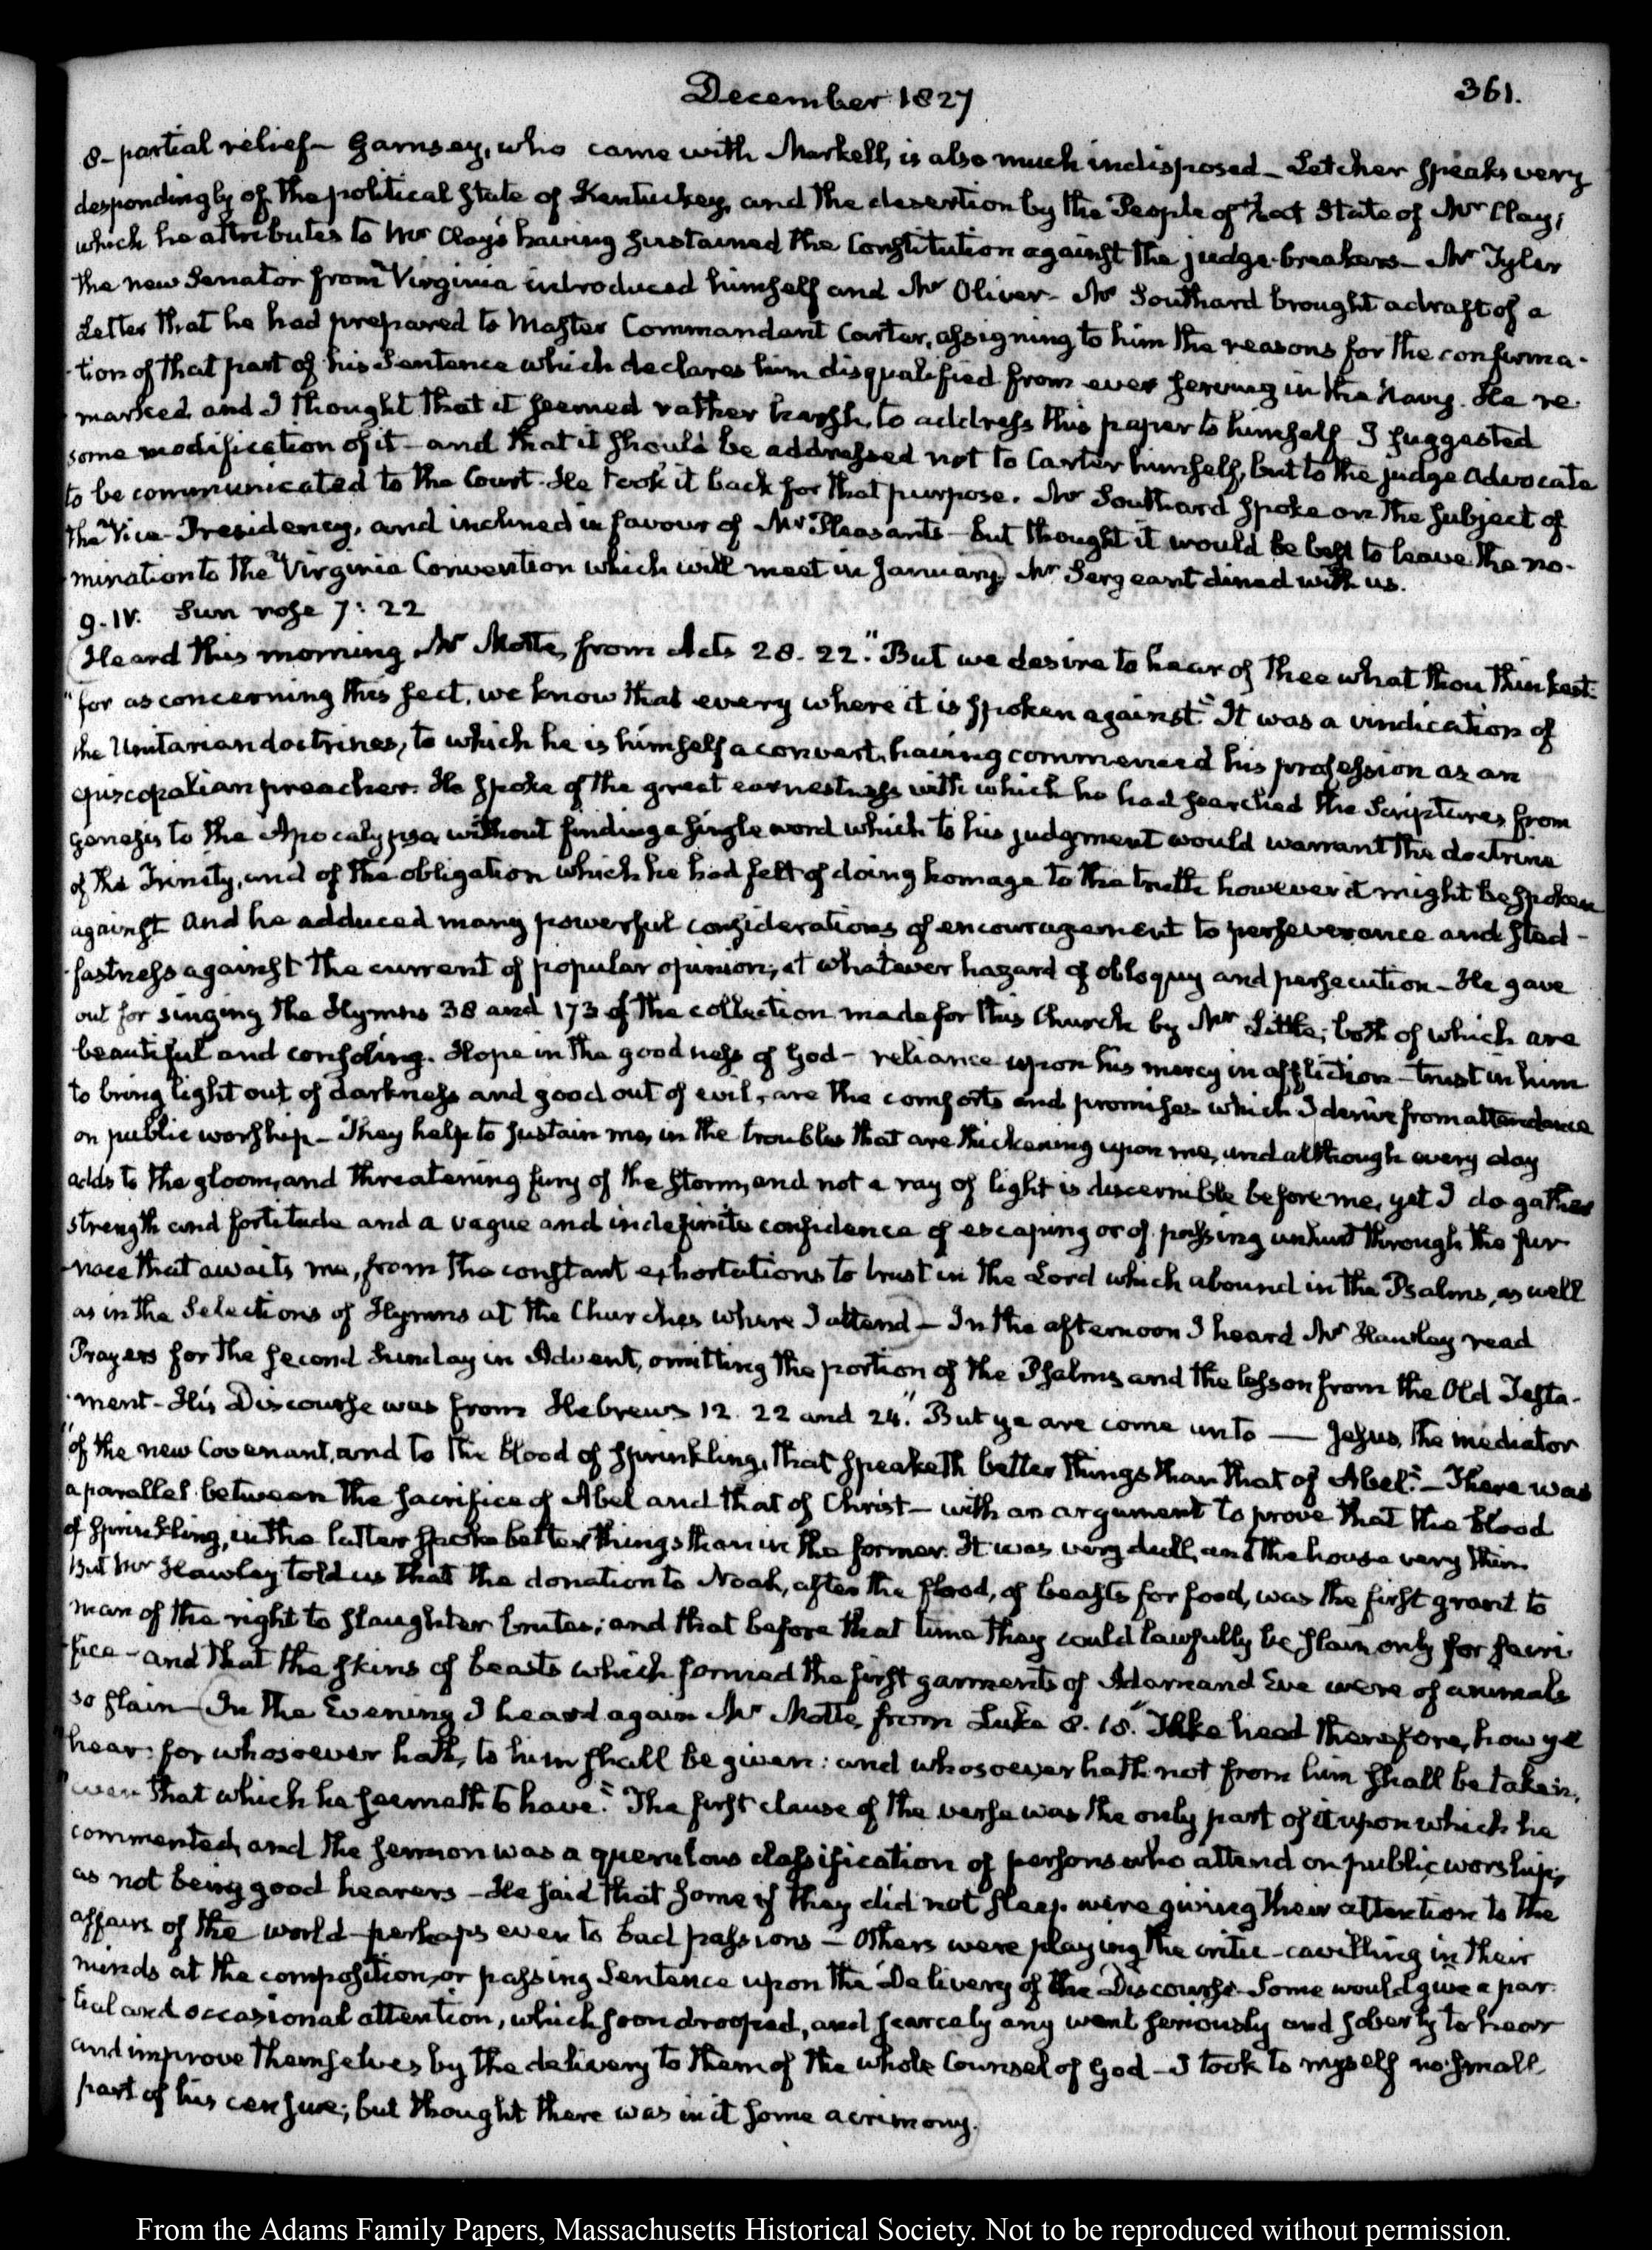 December 1827
361.
8- partial relief- Garnsey, who came with Markell, is also much indisposed- Letcher speaks very
despondingly of the political state of Kentuckey, and the desertion by the People of that State of Mr Clay;
which he attributes to Mr Clay's having sustained the Constitution against the judge-breakers- Mr Tyler
the new Senator from Virginia introduced himself and Mr Oliver- Mr Southard brought a draft of a
Letter that he had prepared to Master Commandant Carter, assigning to him the reasons for the confirma-
-tion of that part of his Sentence which declares him disqualified from ever serving in the Navy. He re-
-marked and I thought that it seemed rather harsh, to address this paper to himself I suggested
some modification of it- and that it should be addressed not to Carter himself, but to the judge Advocate
to be communicated to the Court. He took it back for that purpose. Mr Southard spoke on the subject of
the Vice-Presidency, and inclined in favour of Mr Pleasants- but thought it would be best to leave the no-
-mination to the Virginia Convention which will meet in January) Mr Sergeant dined with us.
9. IV. Sun rose 7:22
(Heard this morning Mr Motte, from Acts 28. 22. "But we desire to hear of thee what thou thinkest:
"for as concerning this sect, we know that every where it is spoken against." It was a vindication of
the Unitarian doctrines, to which he is himself a convert, having commenced his profession as an
episcopalian preacher. He spoke of the great earnestness with which he had searched the Scriptures from
Genesis to the Apocalypse, without finding a single word which to his judgment would warrant the doctrine
of the Trinity, and of the obligation which he had felt of doing homage to the truth however it might be spoken
against and he adduced many powerful considerations of encouragement to perseverance and sted-
-fastness against the current of popular opinion, at whatever hazard of obloquy and persecution- He gave
out for singing the Hymns 38 and 173 of the collection made for this Church by Mr Little; both of which are
beautiful and consoling. Hope in the goodness of God- reliance upon his mercy in affliction- trust in him
to bring light out of darkness and good out of evil, are the comforts and promises which I derive from attendance
on public worship- They help to sustain me, in the troubles that are thickening upon me, and although every day
adds to the gloom, and threatening fury of the storm, and not a ray of light is discernible before me, yet I do gather
strength and fortitude and a vague and indefinite confidence of escaping or of passing unhurt through the fur-
-nace that awaits me, from the constant exhortations to trust in the Lord which abound in the Psalms, as well
as in the Selections of Hymns at the Churches where I attend)- In the afternoon I heard Mr Hawley read
Prayers for the second Sunday in Advent, omitting the portion of the Psalms, and the lesson from the Old Testa-
-ment- His Discourse was from Hebrews 12. 22 and 24. "But ye are come unto — Jesus, the mediator
"of the new Covenant, and to the blood of sprinkling, that speaketh better things than that of Abel."- There was
a parallel between the sacrifice of Abel and that of Christ- with an argument to prove that the blood
of sprinkling, in the latter spoke better things than in the former. It was very dull, and the house very thin
But Mr Hawley told us that the donation to Noah, after the flood, of beasts for food, was the first grant to
man of the right to slaughter brutes; and that before that time they could lawfully be slain only for sacri-
-fice- and that the skins of beasts which formed the first garments of Adam and Eve were of animals
so slain- (In the Evening I heard again Mr Motte, from Luke 8. 18. "Take heed therefore, how ye
"hear: for whosoever hath, to him shall be given: and whosoever hath not from him shall be taken,
"even that which he seemeth to have." The first clause of the verse was the only part of it upon which he
commented, and the sermon was a querulous classification of persons who attend on public worship,
as not being good hearers- He said that some if they did not sleep were giving their attention to the
affairs of the world- perhaps even to bad passions- Others were playing the critic- cavilling in their
minds at the composition, or passing sentence upon the Delivery of the Discourse. Some would give a par-
-tial and occasional attention, which soon drooped, and scarcely any went seriously and soberly to hear
and improve themselves by the delivery to them of the whole Counsel of God- I took to myself no small
part of his censure; but thought there was in it some acrimony.
From the Adams Family Papers, Massachusetts Historical Society. Not to be reproduced without permission.